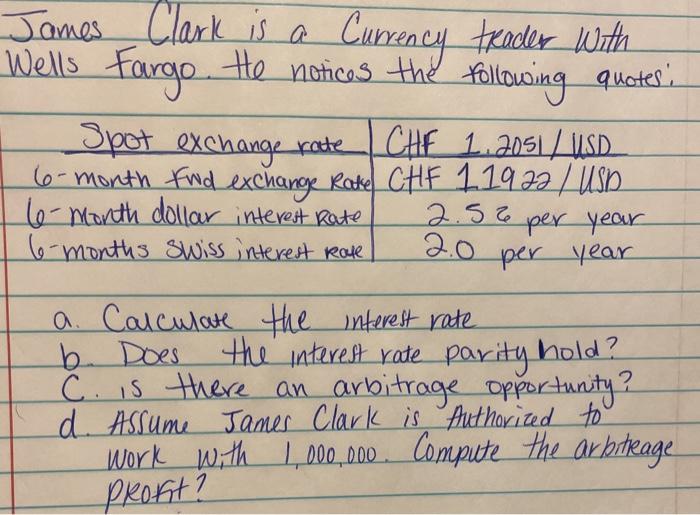 James Clark is a Currency trader With
Wells Fargo. He notices the following quotes:
Spot exchange rate CHF 1.2051/USD
6-month fwd exchange Rate CHF 1.1922/USD
6-month dollar interest Rate 2.5% per year
6-months swiss interest rate 2.0 per year
a. Calculate the interest rate
b. Does the interest rate parity hold?
C. is there an arbitrage opportunity?
d. Assume James Clark is Authorized to
work with 1,000,000. Compute the arbitrage
profit?